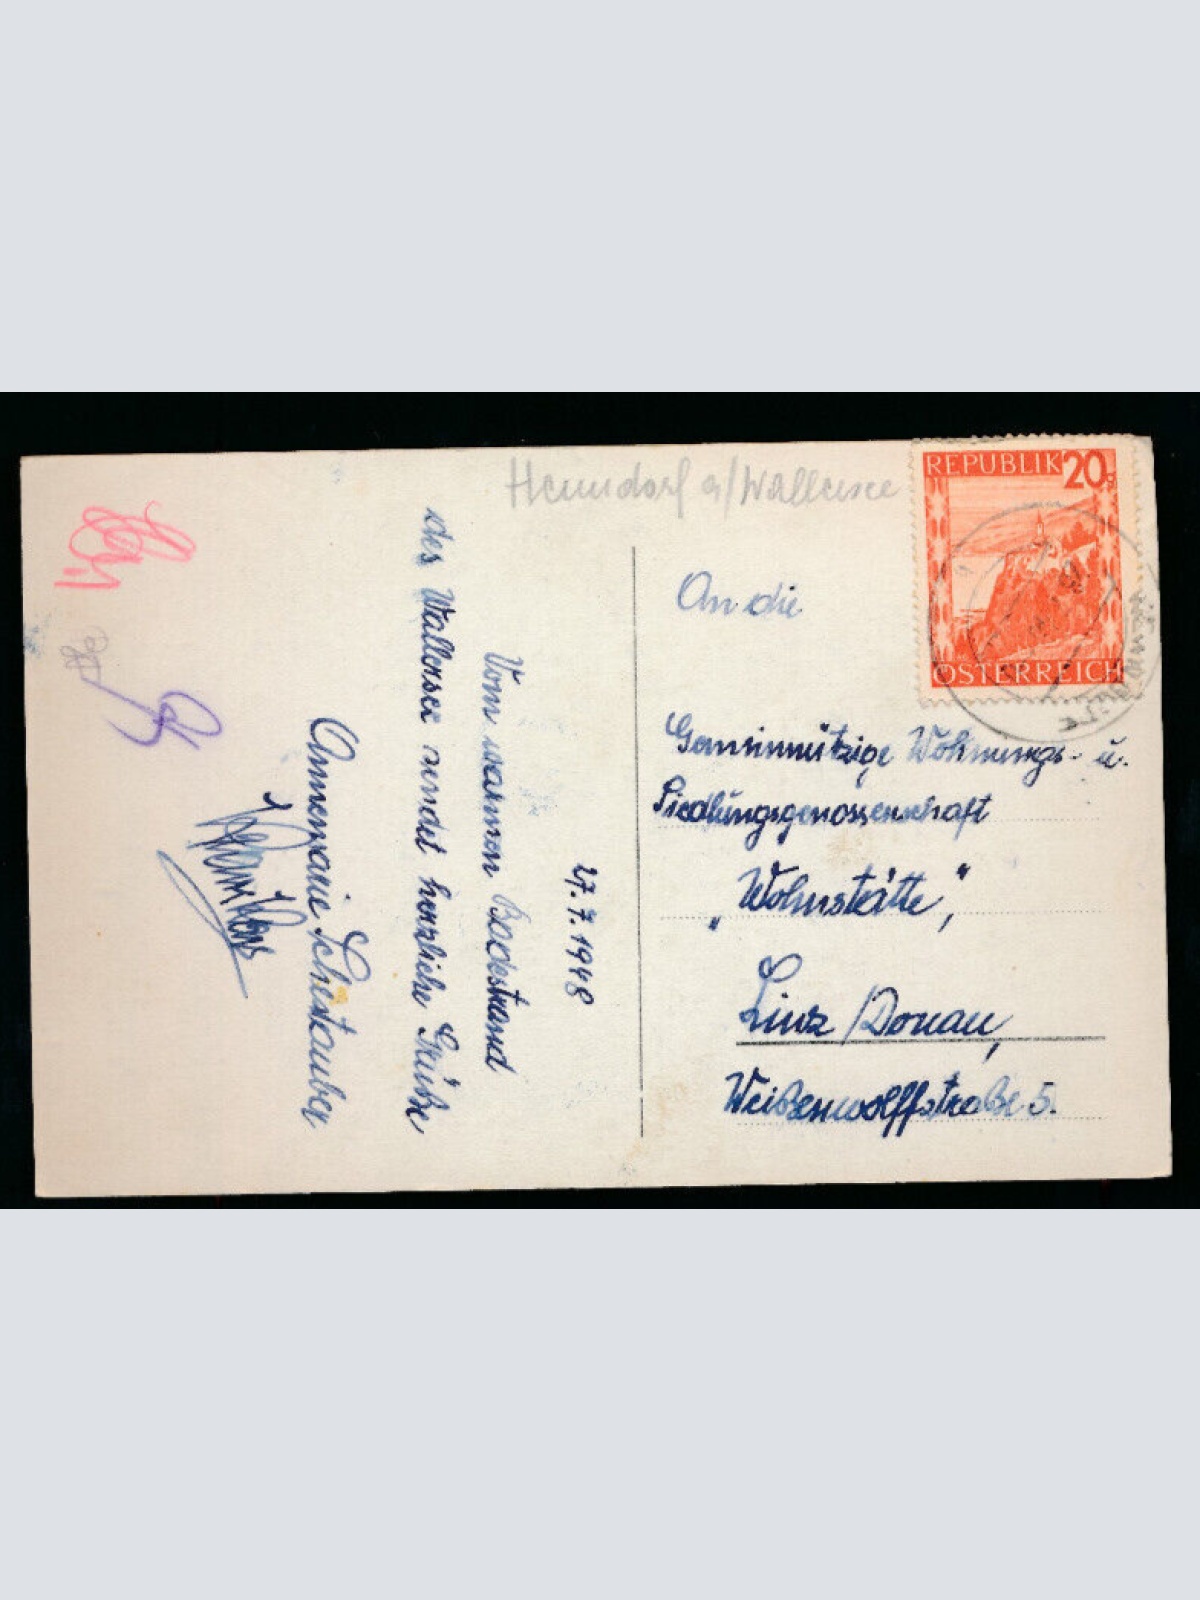 Henndorf a/Wallersee
REPUBLIK 20g
ÖSTERREICH
An die
Gemeinnützige Wohnungs- u.
Siedlungsgenossenschaft
„Wohnstätte“,
Linz/Donau,
Weißenwolffstraße 5.
27.7.1948
Vom warmen Badestrand
des Wallersee sendet herzliche Grüße
Annemarie Schestauber